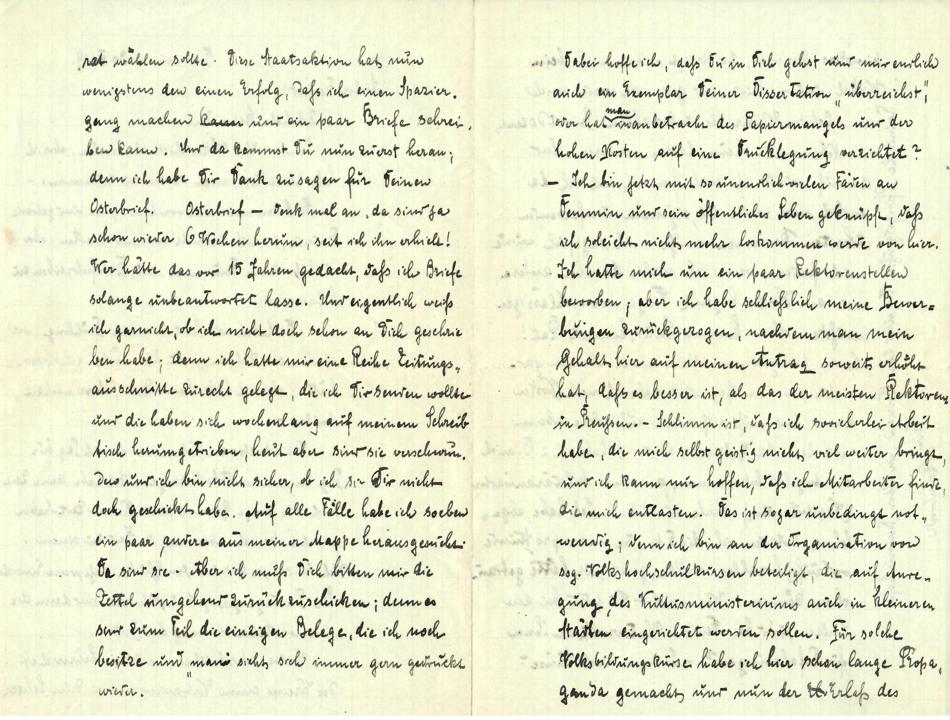 rat wählen sollte. Diese Staatsaktion hat nun
wenigstens den einen Erfolg, daß ich einen Spazier-
gang machen kann und ein paar Briefe schrei-
ben kann. Und da kommst Du nun zuerst heran;
denn ich habe Dir Dank zu sagen für Deinen
Osterbrief. Osterbrief – denk mal an, da sind ja
schon wieder 6 Wochen herum, seit ich ihn erhielt!
Wer hätte das vor 15 Jahren gedacht, daß ich Briefe
solange unbeantwortet lasse. Und eigentlich weiß
ich garnicht, ob ich nicht doch schon an Dich geschrie
ben habe; denn ich hatte mir eine Reihe Zeitungs-
ausschnitte zurecht gelegt, die ich Dir senden wollte
und die haben sich wochenlang auf meinem Schreib
tisch herumgetrieben, heut aber sind sie verschwun-
den und ich bin nicht sicher, ob ich sie Dir nicht
doch geschickt habe. Auf alle Fälle habe ich soeben
ein paar andere aus meiner Mappe herausgesucht.
Da sind sie. Aber ich muß Dich bitten mir die
Zettel umgehend zurückzuschicken; denn es
sind zum Teil die einzigen Belege, die ich noch
besitze und „man sieht sich immer gern gedruckt
wieder.“
Dabei hoffe ich, daß Du in Dich gehst und mir endlich
auch ein Exemplar Deiner Dissertation „überreichst“,
oder hat man inanbetracht des Papiermangels und der
hohen Kosten auf eine Drucklegung verzichtet?
– Ich bin jetzt mit so unendlich vielen Fäden an
Demmin und sein öffentliches Leben geknüpft, daß
ich so leicht nicht mehr loskommen werde von hier.
Ich hatte mich um ein paar Rektorenstellen
beworben; aber ich habe schließlich meine Bewer-
bungen zurückgezogen, nachdem man mein
Gehalt hier auf meinen Antrag soweit erhöht
hat, daß es besser ist, als das der meisten Rektoren
in Preußen. – Schlimm ist, daß ich so vielerlei Arbeit
habe, die mich selbst geistig nicht viel weiter bringt,
und ich kann nur hoffen, daß ich Mitarbeiter finde,
die mich entlasten. Das ist sogar unbedingt not-
wendig; denn ich bin an der Organisation von
sog. Volkshochschulkursen beteiligt, die auf Anre-
gung des Kultusministeriums auch in kleineren
Städten eingerichtet werden sollen. Für solche
Volksbildungskurse habe ich hier schon lange Propa-
ganda gemacht und nun der Erlaß des